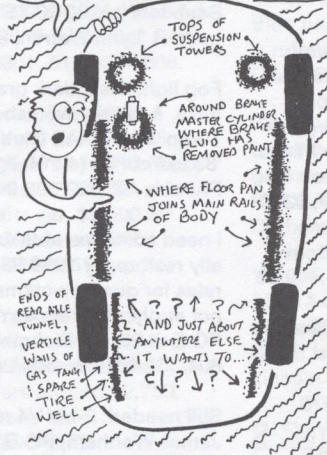 TOPS OF
SUSPENSION
TOWERS
AROUND BRAKE
MASTER CYLINDER
WHERE BRAKE
FLUID HAS
REMOVED PAINT
WHERE FLOOR PAN
JOINS MAIN RAILS
OF BODY
ENDS OF
REAR AXLE
TUNNEL,
VERTICLE
WALLS OF
GAS TANK
& SPARE
TIRE
WELL
? ? ?
AND JUST ABOUT
ANYWHERE ELSE
IT WANTS TO...
? ? ?